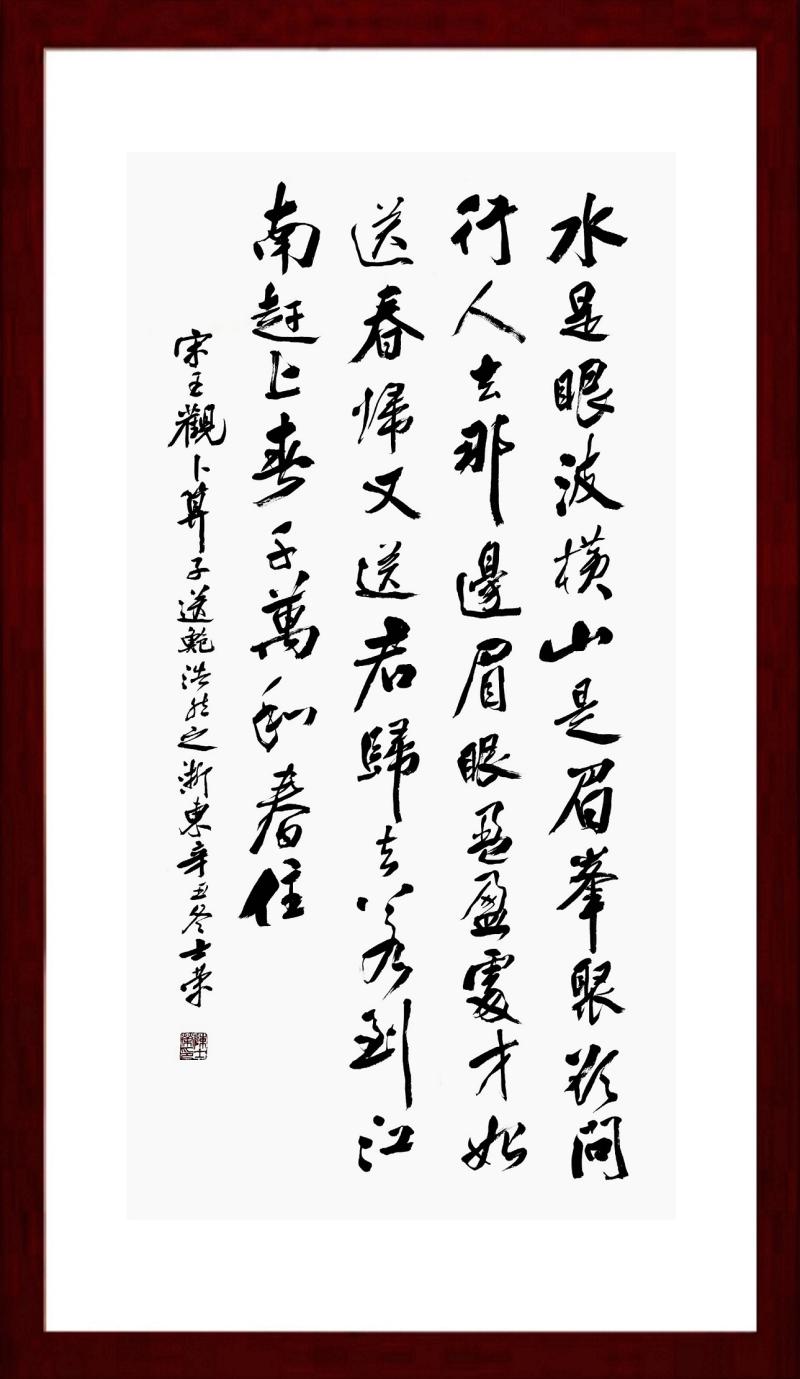 水是眼波橫山是眉峯聚欲問
行人去那邊眉眼盈盈處才始
送春帰又送君歸去若到江
南赶上春千萬和春住
宋王觀卜算子送鮑浩然之浙東辛丑冬士荣
陳士榮印